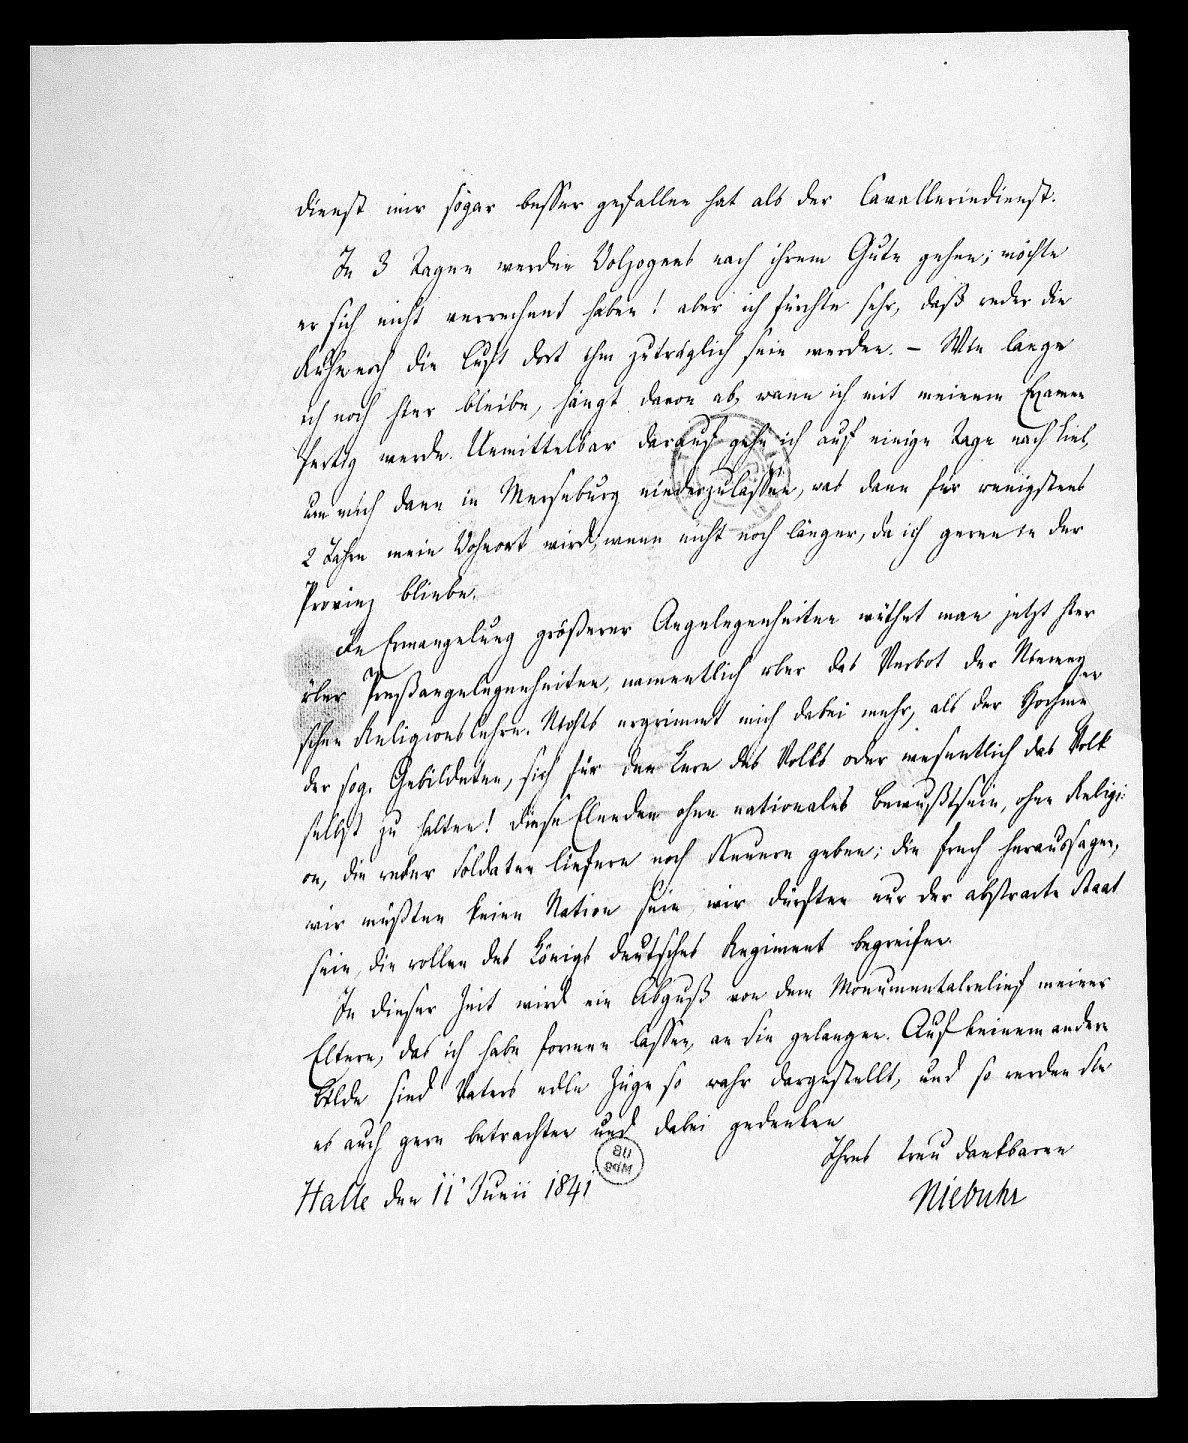 dienst mir sogar besser gefallen hat als der Cavalleriedienst.
In 3 Tagen werden Wolzogens nach ihrem Gute gehen; möchte
er sich nicht verrechnet haben! aber ich fürchte sehr, daß weder die
Ruhe noch die Luft dort ihm zuträglich sein werden. – Wie lange
ich noch hier bleibe, hängt davon ab, wann ich mit meinem Examen
fertig werde. Unmittelbar darauf gehe ich auf einige Tage nach Kiel,
um mich dann in Merseburg niederzulassen, was dann für wenigstens
2 Jahre mein Wohnort wird, wenn nicht noch länger, da ich gerne in der
Provinz bliebe.
In Ermangelung größerer Angelegenheiten wüthet man jetzt hier
über Preßangelegenheiten, namentlich über das Verbot der
schen Religionslehre. Nichts ergrimmt mich dabei mehr, als der Hochmuth
der sog. Gebildeten, sich für den Kern des Volks oder wesentlich das Volk
selbst zu halten! diese Elenden ohne nationales Bewußtsein, ohne Religi:
on, die weder Soldaten liefern noch Steuern geben; die frech heraussagen,
wir müßten keine Nation sein, wir dürften nur der abstracte Staat
sein, die wollen des Königs deutsches Regiment begreifen.
In dieser Zeit wird ein Abguß von dem Monumentalrelief meiner
Eltern, das ich habe formen lassen, an Sie gelangen. Auf keinem andern
Bilde sind Vaters edle Züge so wahr dargestellt, und so werden Sie
es auch gern betrachten und dabei gedenken
Ihres treu dankbaren
Halle den 11 Junii 1841
Niebuhr